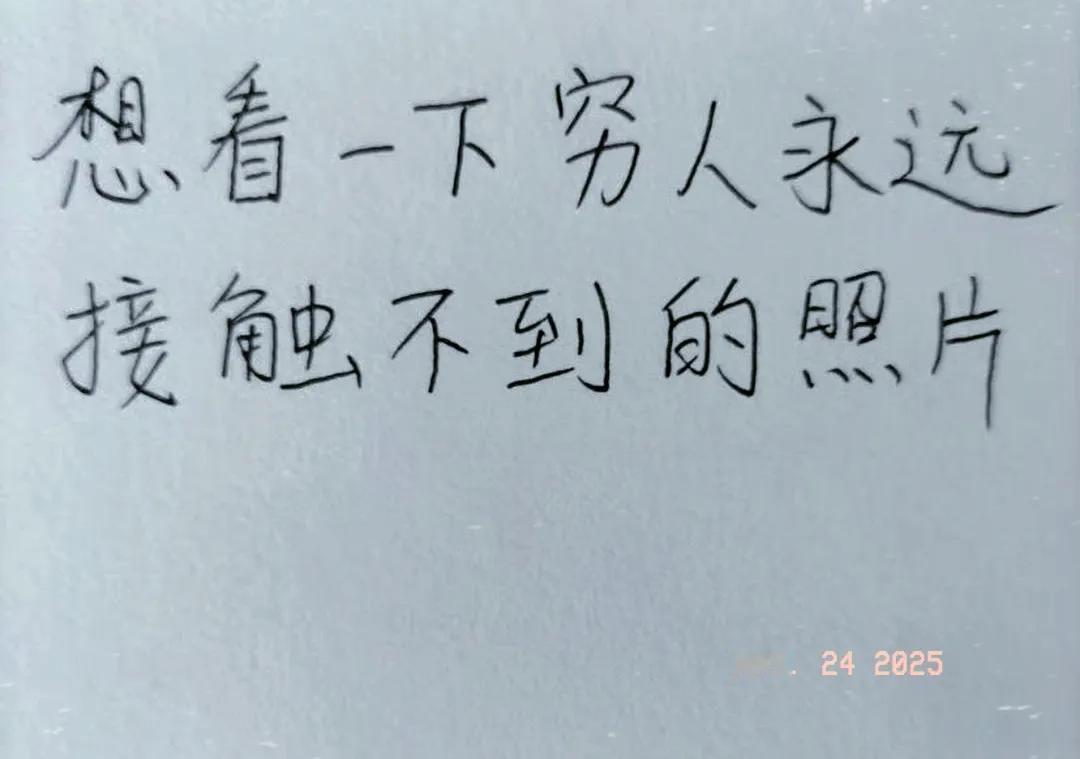 想看一下穷人永远
接触不到的照片
24 2025